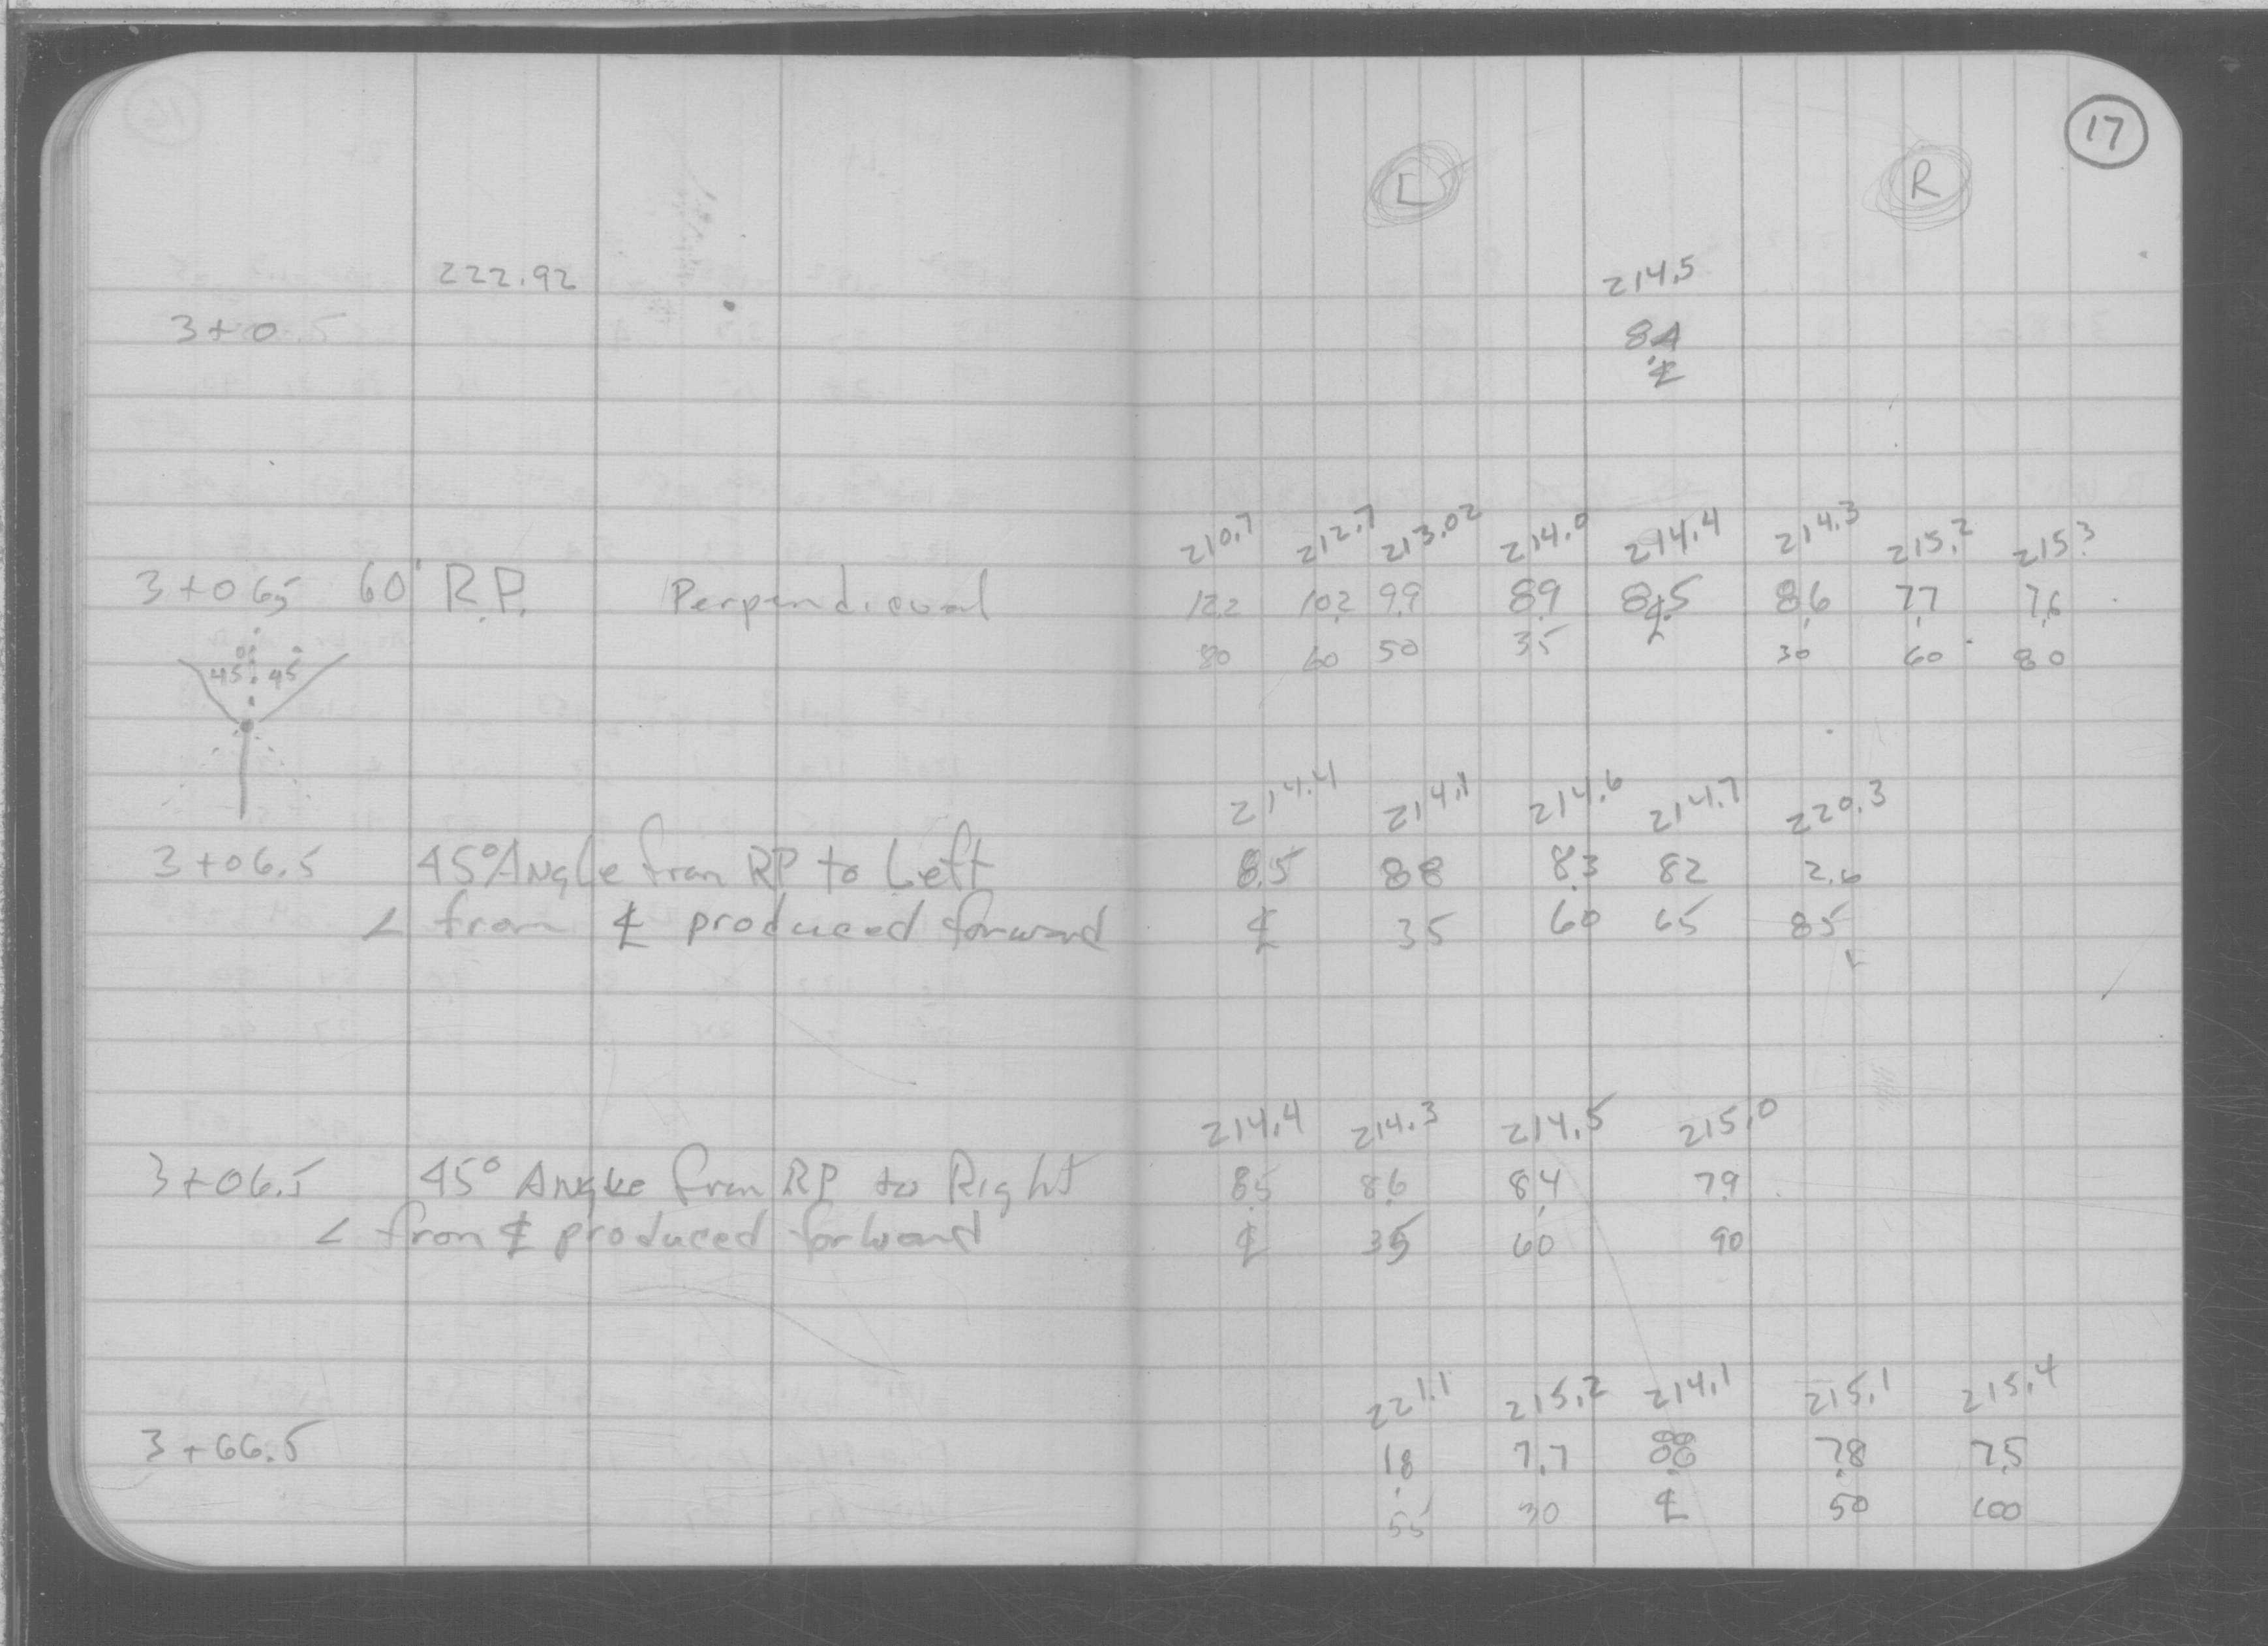 17
L R
222.92 214.5
3+0 8.4
℄
210.7 212.7 213.02 214.0 214.4 214.3 215.2 215.3
3+065 60' R.P. Perpendicual 12.2 10.2 9.9 8.9 8.5 8.6 7.7 7.6
80 60 50 35 ℄ 30 60 80
45 45
214.4 214.1 214.6 214.7 220.3
3+06.5 45° Angle from RP to Left 8.5 8.8 8.3 8.2 2.6
∠ from ℄ produced forward ℄ 35 60 65 85
214.4 214.3 214.5 215.0
3+06.5 45° Angle from RP to Right 8.5 8.6 8.4 7.9
∠ from ℄ produced forward ℄ 35 60 90
221.1 215.2 214.1 215.1 215.4
3+66.5 1.8 7.7 8.8 7.8 7.5
55 30 ℄ 50 100